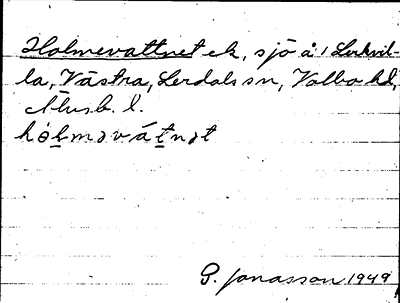 Holmevattnet ek, sjö å 1 Lerkvil-
la, Västra, Lerdals sn, Valbo hd,
Älvsb. l.
hólmǝvátnǝt
G. Jonasson 1949